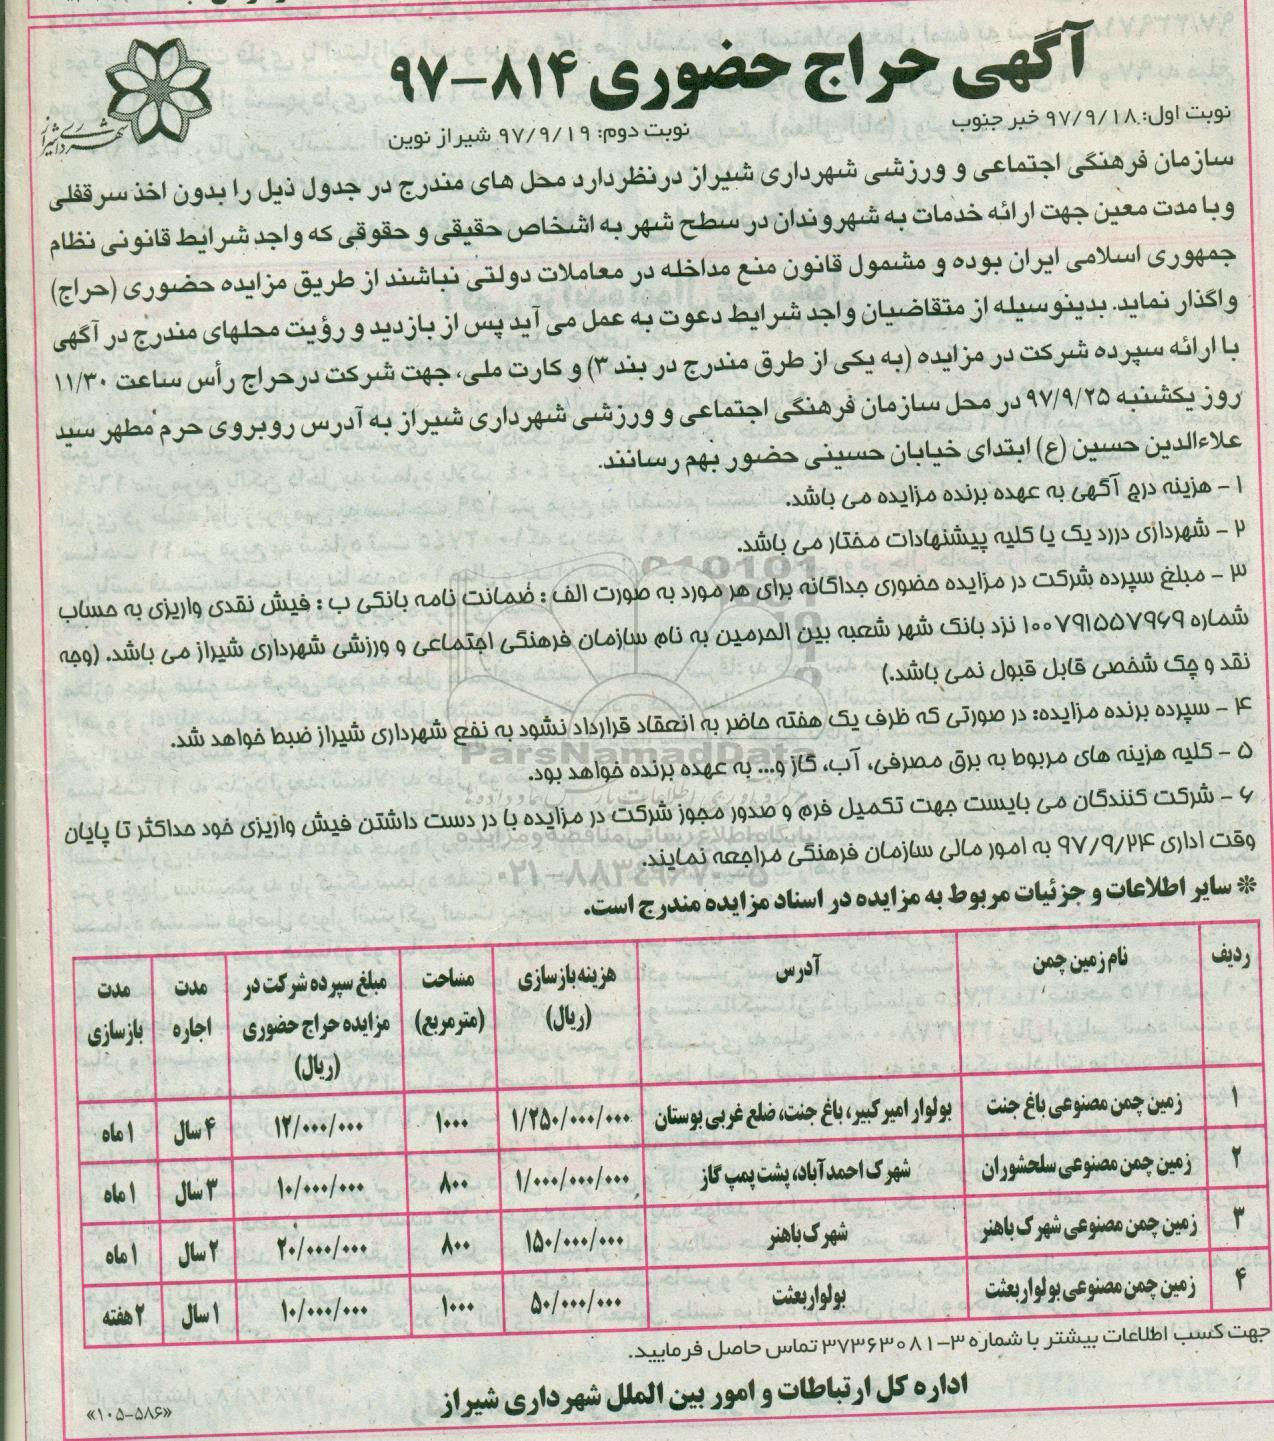 آگهی حراج حضوری ۸۱۴-۹۷
نوبت اول: ۹۷/۹/۱۸ خبر جنوب
نوبت دوم: ۹۷/۹/۱۹ شیراز نوین
شهرداری شیراز
سازمان فرهنگی اجتماعی و ورزشی شهرداری شیراز درنظردارد محل های مندرج در جدول ذیل را بدون اخذ سرقفلی
وبا مدت معین جهت ارائه خدمات به شهروندان در سطح شهر به اشخاص حقیقی و حقوقی که واجد شرایط قانونی نظام
جمهوری اسلامی ایران بوده و مشمول قانون منع مداخله در معاملات دولتی نباشند از طریق مزایده حضوری (حراج)
واگذار نماید. بدینوسیله از متقاضیان واجد شرایط دعوت به عمل می آید پس از بازدید و رؤیت محلهای مندرج در آگهی
با ارائه سپرده شرکت در مزایده (به یکی از طرق مندرج در بند ۳) و کارت ملی، جهت شرکت درحراج رأس ساعت ۱۱/۳۰
روز یکشنبه ۹۷/۹/۲۵ در محل سازمان فرهنگی اجتماعی و ورزشی شهرداری شیراز به آدرس روبروی حرم مطهر سید
علاءالدین حسین (ع) ابتدای خیابان حسینی حضور بهم رسانند.
۱ - هزینه درج آگهی به عهده برنده مزایده می باشد.
۲ - شهرداری دررد یک یا کلیه پیشنهادات مختار می باشد.
۳ - مبلغ سپرده شرکت در مزایده حضوری جداگانه برای هر مورد به صورت الف : ضمانت نامه بانکی ب : فیش نقدی واریزی به حساب
شماره ۱۰۰۷۹۱۵۵۷۹۶۹ نزد بانک شهر شعبه بین الحرمین به نام سازمان فرهنگی اجتماعی و ورزشی شهرداری شیراز می باشد. (وجه
نقد و چک شخصی قابل قبول نمی باشد.)
۴ - سپرده برنده مزایده: در صورتی که ظرف یک هفته حاضر به انعقاد قرارداد نشود به نفع شهرداری شیراز ضبط خواهد شد.
۵ - کلیه هزینه های مربوط به برق مصرفی، آب، گاز و... به عهده برنده خواهد بود.
۶ - شرکت کنندگان می بایست جهت تکمیل فرم و صدور مجوز شرکت در مزایده با در دست داشتن فیش واریزی خود حداکثر تا پایان
وقت اداری ۹۷/۹/۲۴ به امور مالی سازمان فرهنگی مراجعه نمایند.
ParsNamadData
پایگاه اطلاع رسانی مناقصه و مزایده
۰۲۱-۸۸۳۴۹۶۷۰-۵
※ سایر اطلاعات و جزئیات مربوط به مزایده در اسناد مزایده مندرج است.
ردیف | نام زمین چمن | آدرس | هزینه بازسازی (ریال) | مساحت (مترمربع) | مبلغ سپرده شرکت در مزایده حراج حضوری (ریال) | مدت اجاره | مدت بازسازی
۱ | زمین چمن مصنوعی باغ جنت | بولوار امیرکبیر، باغ جنت، ضلع غربی بوستان | ۱/۲۵۰/۰۰۰/۰۰۰ | ۱۰۰۰ | ۱۲/۰۰۰/۰۰۰ | ۴ سال | ۱ ماه
۲ | زمین چمن مصنوعی سلحشوران | شهرک احمدآباد، پشت پمپ گاز | ۱/۰۰۰/۰۰۰/۰۰۰ | ۸۰۰ | ۱۰/۰۰۰/۰۰۰ | ۳ سال | ۱ ماه
۳ | زمین چمن مصنوعی شهرک باهنر | شهرک باهنر | ۱۵۰/۰۰۰/۰۰۰ | ۸۰۰ | ۲۰/۰۰۰/۰۰۰ | ۲ سال | ۱ ماه
۴ | زمین چمن مصنوعی بولوار بعثت | بولوار بعثت | ۵۰/۰۰۰/۰۰۰ | ۱۰۰۰ | ۱۰/۰۰۰/۰۰۰ | ۱ سال | ۲ هفته
جهت کسب اطلاعات بیشتر با شماره ۳-۳۷۳۶۳۰۸۱ تماس حاصل فرمایید.
اداره کل ارتباطات و امور بین الملل شهرداری شیراز
«۱۰۵-۵۸۶»